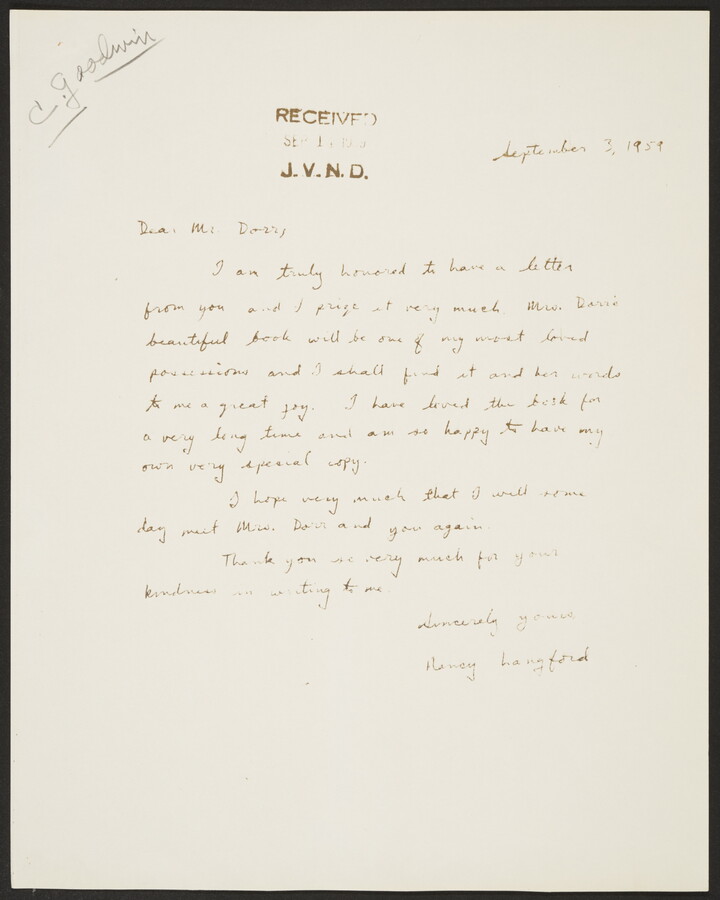 C. Goodwin
RECEIVED
SEP 1 1959
J. V. N. D.
September 3, 1959
Dear Mr. Dorr,
I am truly honored to have a letter
from you and I prize it very much. Mrs. Dorr's
beautiful book will be one of my most loved
possessions and I shall find it and her words
to me a great joy. I have loved the book for
a very long time and am so happy to have my
own very special copy.
I hope very much that I will some
day meet Mrs. Dorr and you again.
Thank you so very much for your
kindness in writing to me.
Sincerely yours,
Nancy Langford